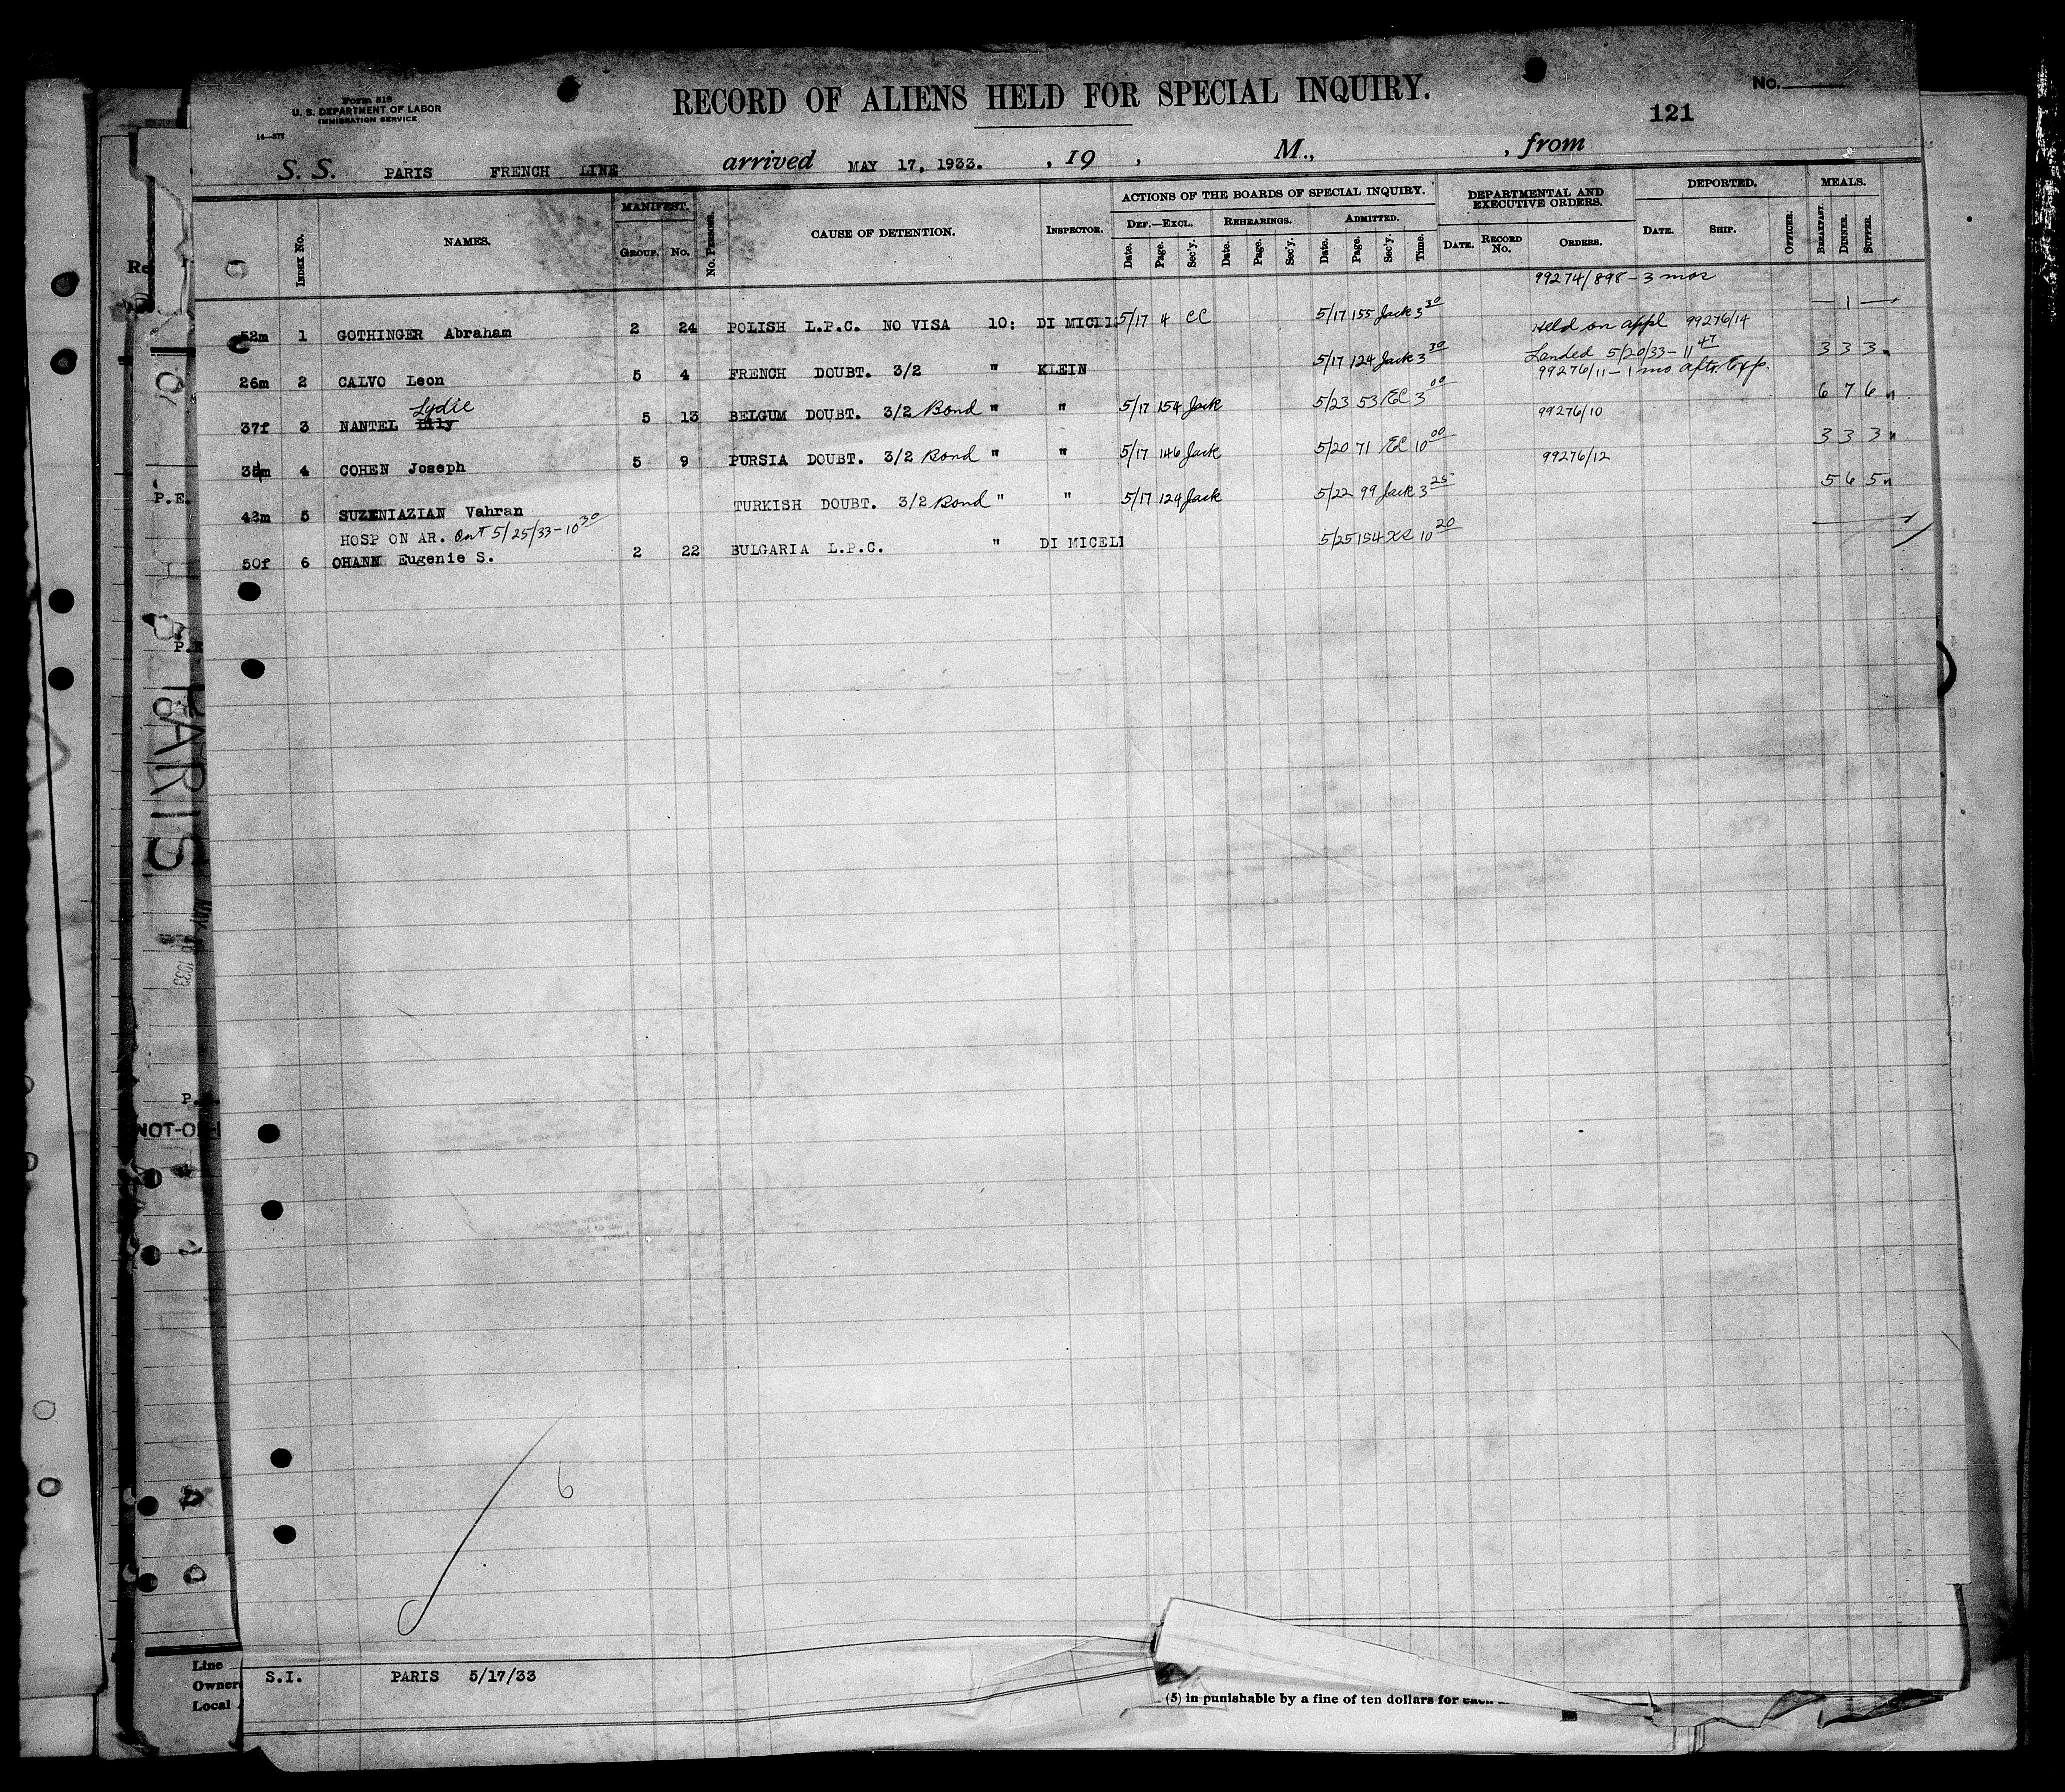 Form 518
U. S. DEPARTMENT OF LABOR
IMMIGRATION SERVICE
14—377
RECORD OF ALIENS HELD FOR SPECIAL INQUIRY.
No.
121
S. S. PARIS FRENCH LINE arrived MAY 17, 1933. , 19 , M., , from
INDEX No. NAMES. MANIFEST. GROUP. No. No. PERSONS. CAUSE OF DETENTION. INSPECTOR. ACTIONS OF THE BOARDS OF SPECIAL INQUIRY. DEPARTMENTAL AND EXECUTIVE ORDERS. DEPORTED. MEALS.
DEF.—EXCL. REHEARINGS. ADMITTED.
Date. Page. Sec'y. Date. Page. Sec'y. Date. Page. Sec'y. Time. DATE. RECORD No. ORDERS. DATE. SHIP. OFFICER. BREAKFAST. DINNER. SUPPER.
99274/898 - 3 mos
52m 1 GOTHINGER Abraham 2 24 POLISH L.P.C. NO VISA 10: DI MICELI 5/17 4 CC 5/17 155 Jack 3 30 — 1 —
Held on appl 99276/14
Landed 5/20/33 - 11 47
26m 2 CALVO Leon 5 4 FRENCH DOUBT. 3/2 " KLEIN 5/17 124 Jack 3 30 3 3 3
99276/11 - 1 mo aftr. Exp.
Lydie
37f 3 NANTEL Lily 5 13 BELGUM DOUBT. 3/2 Bond " " 5/17 154 Jack 5/23 53 EC 3 00 99276/10 6 7 6
35m 4 COHEN Joseph 5 9 PURSIA DOUBT. 3/2 Bond " " 5/17 146 Jack 5/20 71 EC 10 00 99276/12 3 3 3
43m 5 SUZENIAZIAN Vahran TURKISH DOUBT. 3/2 Bond " " 5/17 124 Jack 5/22 99 Jack 3 25 5 6 5
HOSP ON AR. Out 5/25/33 - 10 30
50f 6 OHANN Eugenie S. 2 22 BULGARIA L.P.C. " DI MICELI 5/25 154 10 20
6
S.I. PARIS 5/17/33
P.E.
PARIS
MAY 17 1933
Line
Owner
Local
(5) in punishable by a fine of ten dollars for each